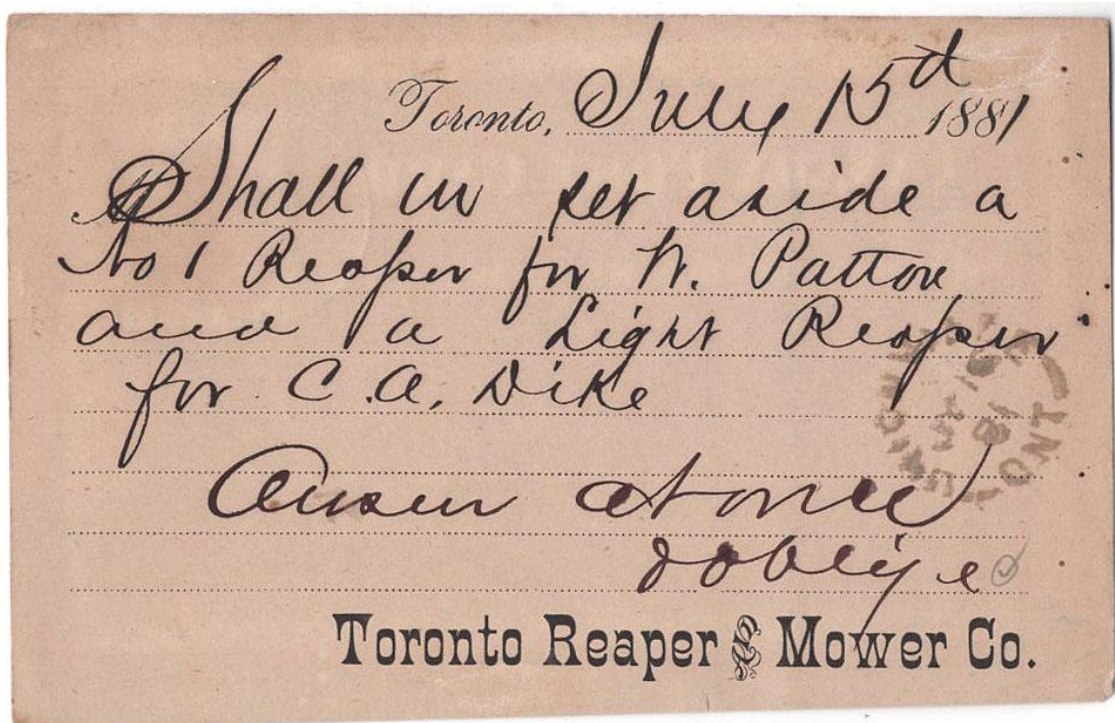 Toronto, July 15d 1881
Shall we set aside a
No 1 Reaper for W. Patton
and a Light Reaper
for C.A. Dike
Answer at once
& oblige
Toronto Reaper and Mower Co.
ONT